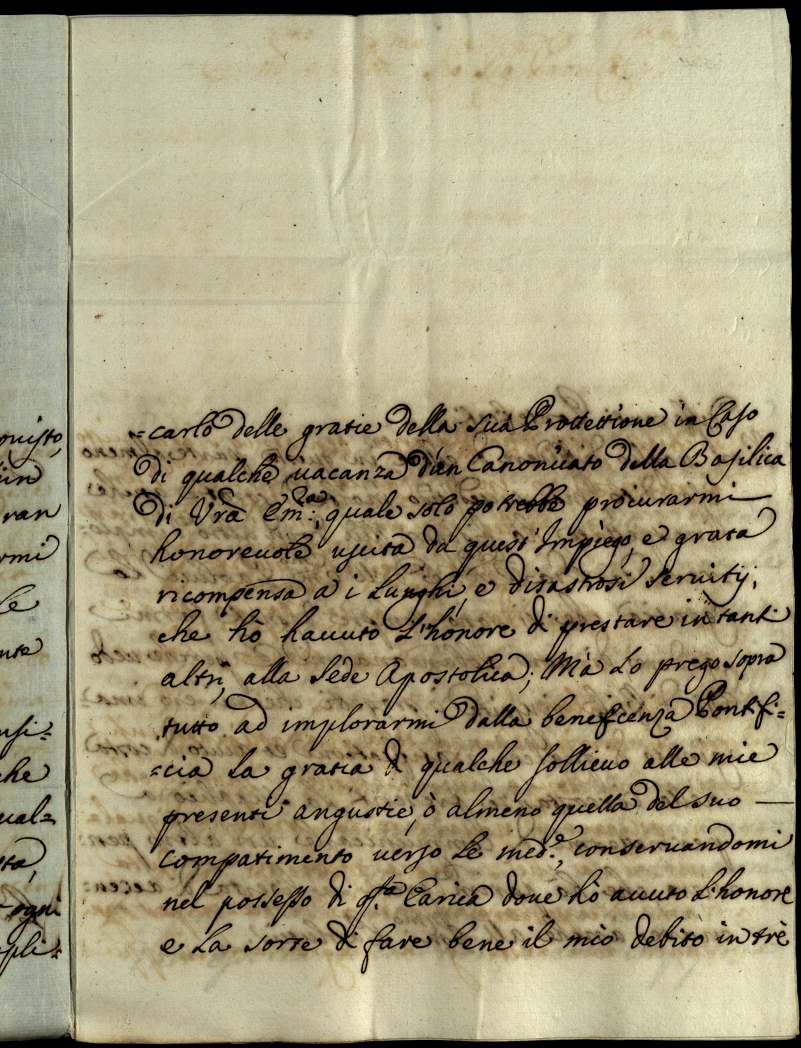 onisto,
un
ran
rmi
le
nte
nsi=
che
ual=
sta,
ogni
pli=
=carlo delle gratie della sua Protettione in Caso
di qualche vacanza d'un Canonicato della Basilica
di Vrã Em:za, quale solo potrebbe procurarmi
honorevole uscita da quest'Impiego, e grata
ricompensa a i lunghi, e disastrosi servitij,
che hò havuto L'honore di prestare in tant'
altri, alla Sede Apostolica; Mà Lo prego sopra
tutto ad implorarmi dalla beneficenza Pontifi=
=cia La gratia di qualche sollievo alle mie
presenti angustie, ò almeno quella del suo
compatimento verso Le med.e, conservandomi
nel possesso di q.sta Carica dove hò avuto L'honore
e La sorte di fare bene il mio debito in trè